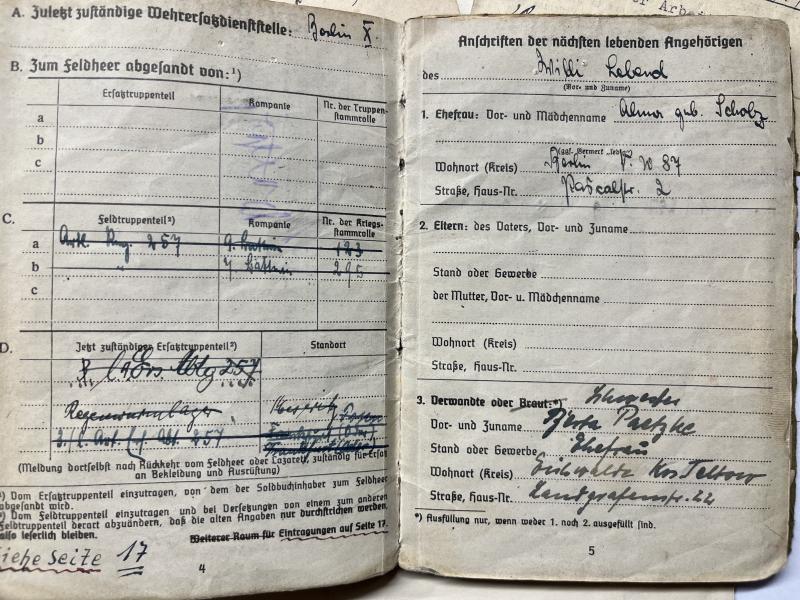 A. Zuletzt zuständige Wehrersatzdienststelle: Berlin X.
B. Zum Feldheer abgesandt von:¹)
Ersatztruppenteil
Kompanie
Nr. der Truppen-
stammrolle
a
b
c
C. Feldtruppenteil²)
Kompanie
Nr. der Kriegs-
stammrolle
a Artl. Rug. 257 9. 123
b " 7. 295
c
D. Jetzt zuständiger Ersatztruppenteil²)
Standort
l. A. Ers. Abtlg 257
Regenwurmlager Meseritz
Posen
3./l. Art. Abt. 257
(Meldung dortselbst nach Rückkehr vom Feldheer oder Lazarett, zuständig für Ersatz
an Bekleidung und Ausrüstung)
¹) Vom Ersatztruppenteil einzutragen, von dem der Soldbuchinhaber zum Feldheer
abgesandt wird.
²) Vom Feldtruppenteil einzutragen und bei Versetzungen von einem zum anderen
Feldtruppenteil derart abzuändern, daß die alten Angaben nur durchstrichen werden,
also leserlich bleiben.
Weiterer Raum für Eintragungen auf Seite 17.
siehe Seite 17
4
Anschriften der nächsten lebenden Angehörigen
des Willi Lebend
(Vor- und Zuname)
1. Ehefrau: Vor- und Mädchenname Alma geb. Scholz
(ggf. Vermerk „ledig")
Wohnort (Kreis) Berlin N.W 87
Straße, Haus-Nr. Pascalstr. 2
2. Eltern: des Vaters, Vor- und Zuname
Stand oder Gewerbe
der Mutter, Vor- u. Mädchenname
Wohnort (Kreis)
Straße, Haus-Nr.
3. Verwandte oder Braut:*) Schwester
Vor- und Zuname Berta Paetzke
Stand oder Gewerbe Ehefrau
Wohnort (Kreis) Eichwalde Krs Teltow
Straße, Haus-Nr. Landgrafenstr. 22
*) Ausfüllung nur, wenn weder 1. noch 2. ausgefüllt sind.
5